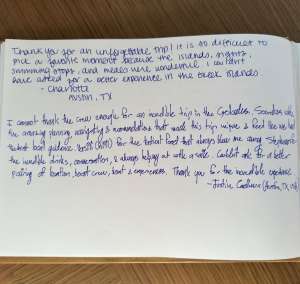 Thank you for an unforgettable trip! It is so difficult to
pick a favorite moment because the islands, sights,
swimming stops, and meals were wonderful. I couldn't
have asked for a better experience in the Greek Islands.
- Charlotte
Austin, TX
I cannot thank the crew enough for an incredible trip in the Cyclades,
the amazing planning, navigating & accommodations that made this trip unique &
for the food that always blew me away.
the incredible drinks, conversation, & always helping with a smile. Couldn't ask for a better
pairing of boat crew, boat & experiences. Thank you for the incredible experience
(Austin, TX, USA)